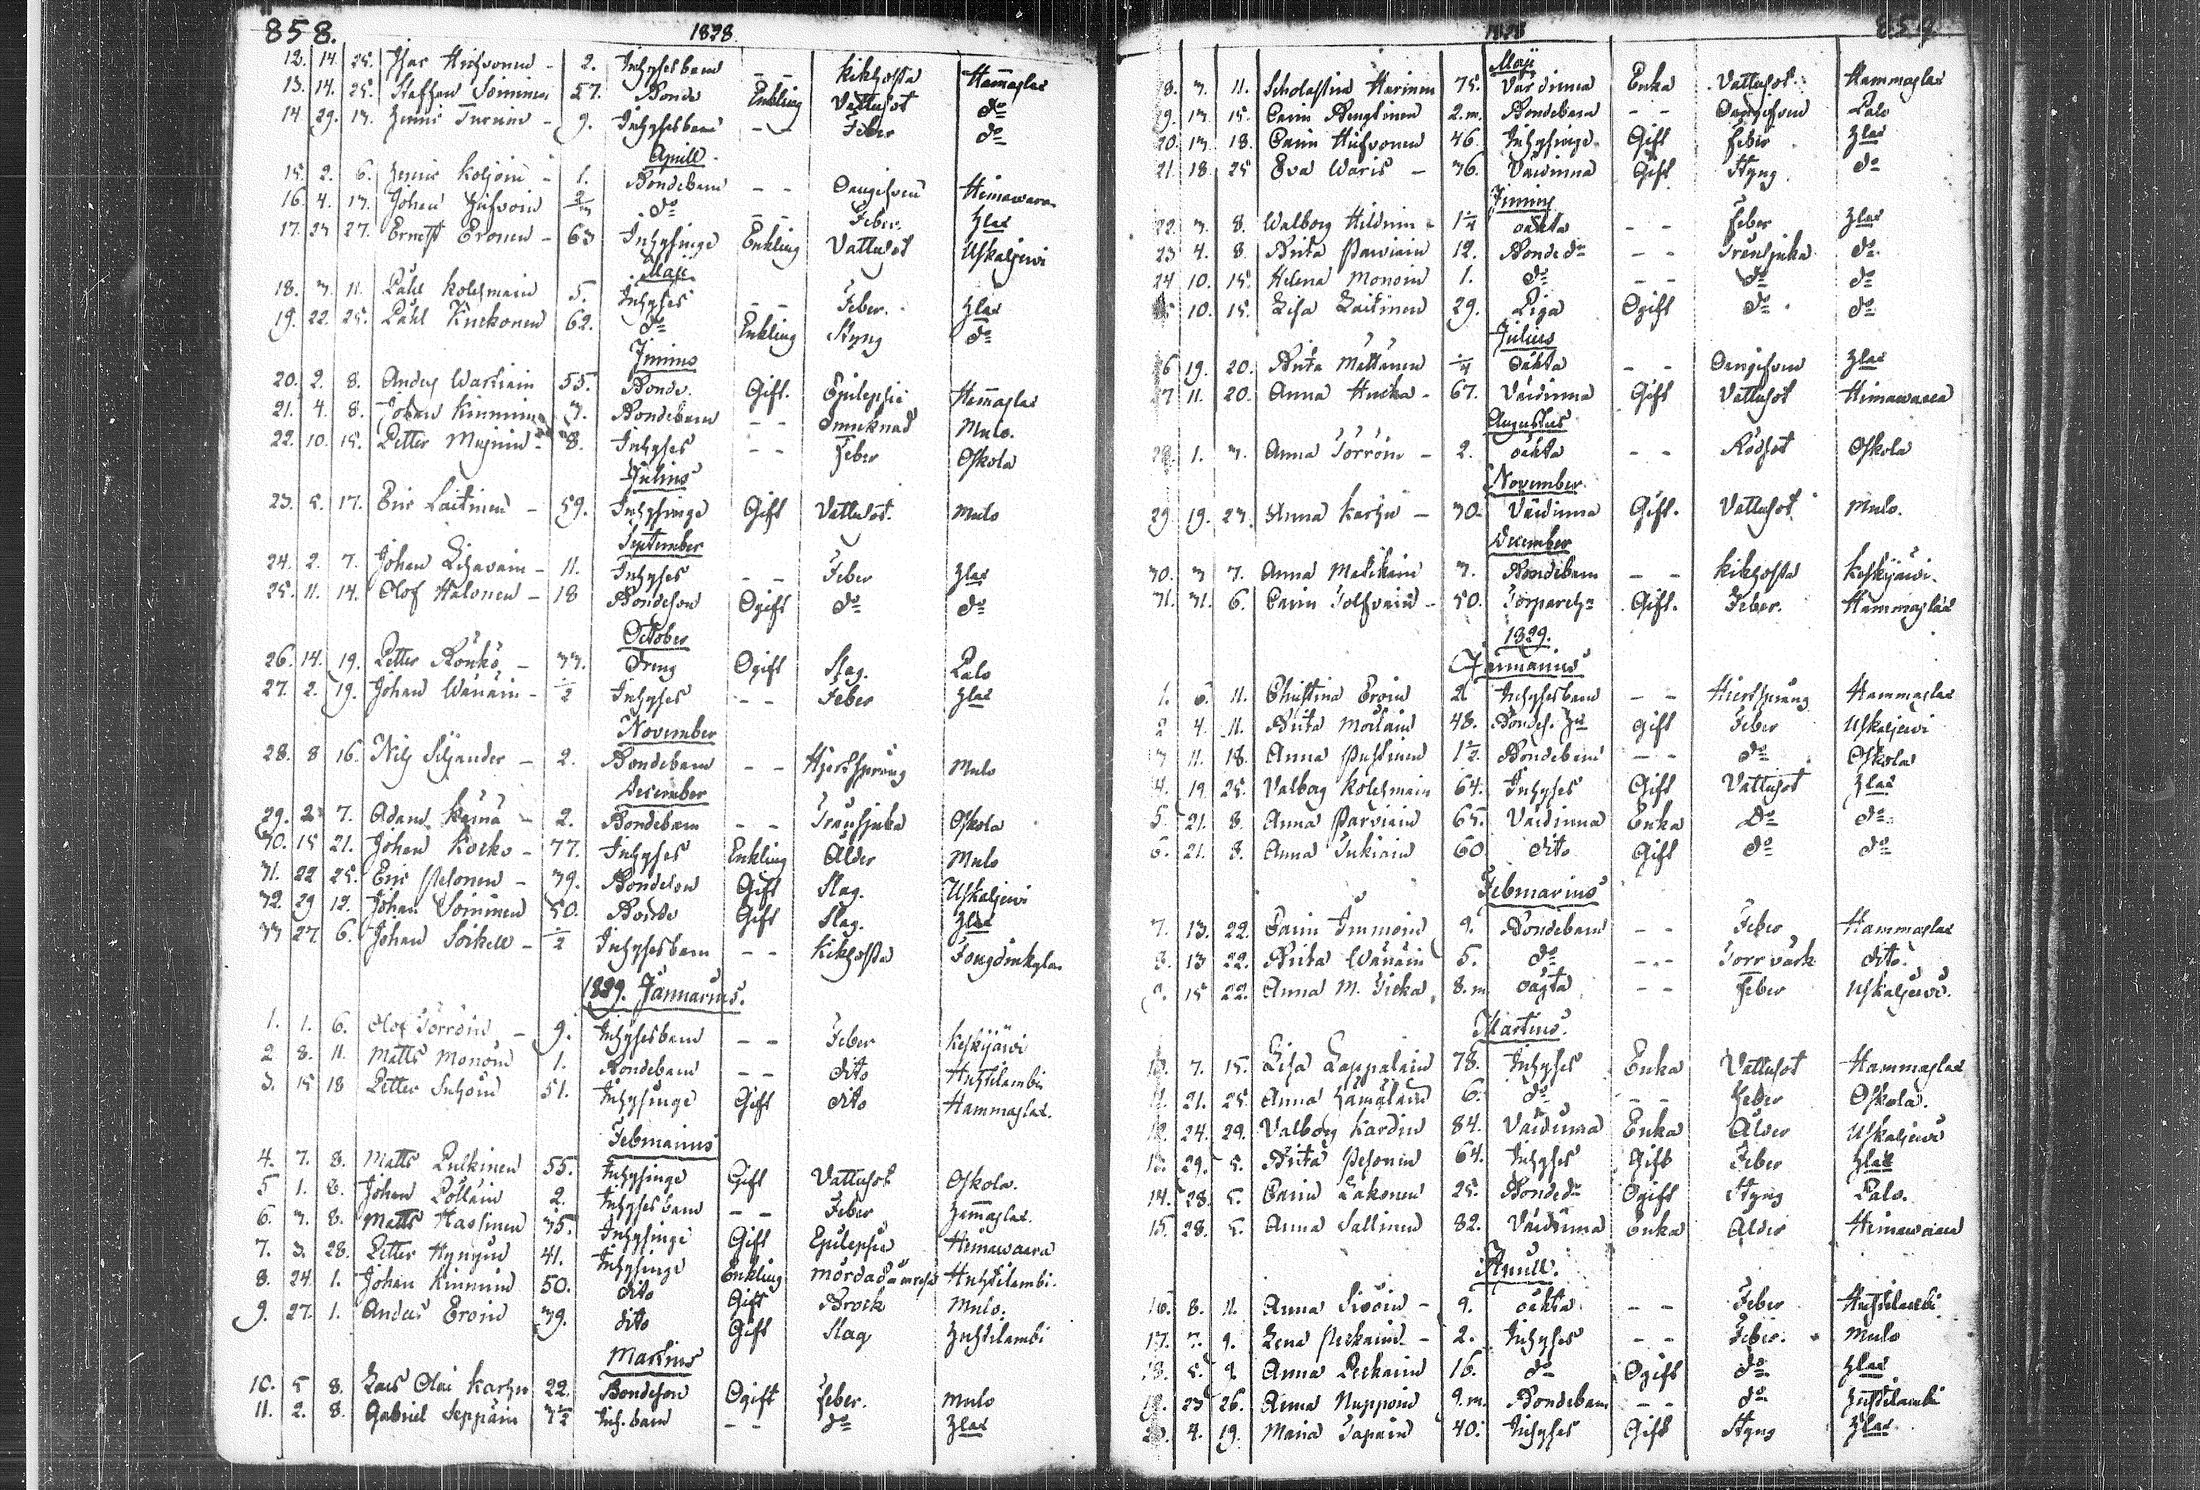 858.
1828
12. 14. 25. Isac Hirfvonen - 2. Inhysesbarn - - Kikhosta Hammaslax
13. 14. 25. Staffan Soininen 57. Bonde Enkling Vattusot do
14 29. 13. Henric Turunen - 9. Inhysesbarn - - Feber do
Aprill
15. 2. 6. Henric Koljoin - 1. Bondebarn - - Oangifven Heinawara
16. 4. 13. Johan - do - - Feber. Hlax
17. 23 27. Ernest Eronen - 63 Inhysinge Enkling Vattusot Uskaljervi
Maji
18. 3. 11. Påhl Kolehmain 5. Inhyses - - Feber. Hlax
19. 22. 25. Påhl 62. do Enkling Styng do
Junius
20. 2. 8. Anders Wartiain 55. Bonde. Gift. Epilepsie Hammaslax
21. 4. 8. Johan Kinnunen 3. Bondebarn - - Drucknad Mulo.
22. 10. 15. Petter - 8. Inhyses - - Feber Oskola
Julius
23. 5. 17. Eric Laitinen - 59. Inhysinge Gift Vattusot. Mulo
September
24. 2. 7. Johan - 11. Inhyses - - Feber Hlax
25. 11. 14. Olof Halonen - 18 Bondeson Ogift do do
October
26. 14. 19. Petter Rönkö - 33. Dreng Ogift Slag. Palo
27. 2. 19. Johan Wänäin - 1/2 Inhyses - - Feber Hlax
November
28. 8 16. Nils Siljander - 2. Bondebarn - - Hjertsprång Mulo
December
29. 2 7. Adam Keinä - 2. Bondebarn - - Transjuka Oskola
30. 15 21. Johan Kocko - 77. Inhyses Enkling Ålder Mulo
31. 22 25. Eric Pesonen - 39. Bondeson Gift Slag. Uskaljervi
32. 29 12. Johan Soininen 50. Bonde Gift Slag. Hlax
33 27. 6. Johan - 1/2 Inhysesbarn - - Kikhosta
1829. Januarius.
1. 1. 6. Olof Torröin - 9. Inhysesbarn - - Feber Keskijärvi
2 8. 11. Matts Monoin 1. Bondebarn - - dito Huhtilambi
3. 15 18 Petter Suhoin 51. Inhysinge Gift dito Hammaslax.
Februarius
4. 7. 8. Matts Pulkinen 55. Inhysinge Gift Vattusot Oskola.
5 1. 8. Johan Pöllain 2. Inhysesbarn - - Feber Hammaslax.
6. 3. 8. Matts Hassinen 35. Inhysinge Gift Epilepsia Heinawaara
7. 3. 28. Petter Hynynen 41. Inhysinge Enkling Huhtilambi.
8. 24 1. Johan Kinnunen 50. dito Gift Brock Mulo.
9. 27. 1. Anders Eroin 39. dito Gift Slag Huhtilambi
Martius
10. 5 8. Lars Olai Karhu 22. Bondeson Ogift Feber. Mulo
11. 2. 8. Gabriel Seppäin 3 1/2 Inh. barn - - do Hlax
1828
859
Maji
18. 3. 11. Scholastica Harinen 75. Värdinna Enka Vattusot Hammaslax
19. 13 15. Carin Bengtinen 2.m. Bondebarn - - Oangifven Palo
20. 13. 18. Carin Hirfvonen 46. Inhysinge Gift Feber Hlax
21. 18. 25 Eva Waris - 36. Värdinna Gift Styng do
Junius
22. 3. 8. Walborg Hildinen 1 1/4 oäkta - - Feber Hlax
23 4. 8. Brita Parviain 12. Bonded:r - - Transjuka do
24 10. 15. Helena Monoin 1. do - - do do
10. 15. Lisa Laitinen 29. Piga Ogift do do
Julius
26 19. 20. Brita Mattanen 1/4 Oäkta - - Oangifven Hlax
27 11. 20. Anna Hucka - 67. Värdinna Gift Vattusot Heinawaara
Augustus
28. 1. 3. Anna Torröin - 2. oäkta - - Rödsot Oskola
November
29. 19. 23. Anna Karhu - 30. Värdinna Gift. Vattusot Mulo.
December
30. 3 7. Anna Matikain 3. Bondebarn - - Kikhosta Keskijärvi.
31. 31. 6. Carin Tolfvain - 50. Gift. Feber. Hammaslax
1829.
Januarius
1. 6. 11. Christina Eroin 2 Inhysesbarn - - Hiertsprång Hammaslax
2 4. 11. Brita 48. Gift Feber Uskaljervi
3 11. 18. Anna Puhtinen 1 1/2 Bondebarn - - do Oskola
4. 19. 25. Valborg Kolehmain 64. Inhyses Gift Vattusot Hlax
5. 21. 8. Anna Parviain 65. Värdinna Enka Do do
6. 21. 8. Anna Tukiain 60 dito Gift do do
Februarius
7. 13. 22. Carin Immoin 9. Bondebarn - - Feber Hammaslax
8. 13 22. Brita Wänäin 5. do - - Torrvärk dito.
9. 15 22. Anna M. Ticka 8. m oägta - - Feber Uskaljervi.
Martius.
10. 7. 15. Lisa Lappalain 78. Inhyses Enka Vattusot Hammaslax
11. 21. 25. Anna Hämäläin 6. do - - Feber Oskola.
12. 24. 29. Valborg 84. Värdinna Enka Ålder Uskaljervi
13. 29. 5. Brita Pesonen 64. Inhyses Gift Feber Hlax
14. 28. 5. Carin Lakonen 25. Bonded:r Ogift Styng Palo.
15. 28. 5. Anna Sallinen 82. Värdinna Enka Ålder Heinawaara
Aprill.
16. 8. 11. Anna Sivoin - 9. oäkta - - Feber Huhtilambi
17. 7. 9. Lena Peckain - 2. Inhyses - - Feber. Mulo
18. 5. 9 Anna Peckain 16. do Ogift do Hlax
19. 23 26. Anna Nuppoin 9.m. Bondebarn - - do Huhtilambi
20. 4. 19. Maria Tapain 40. Inhyses Gift Styng Hlax